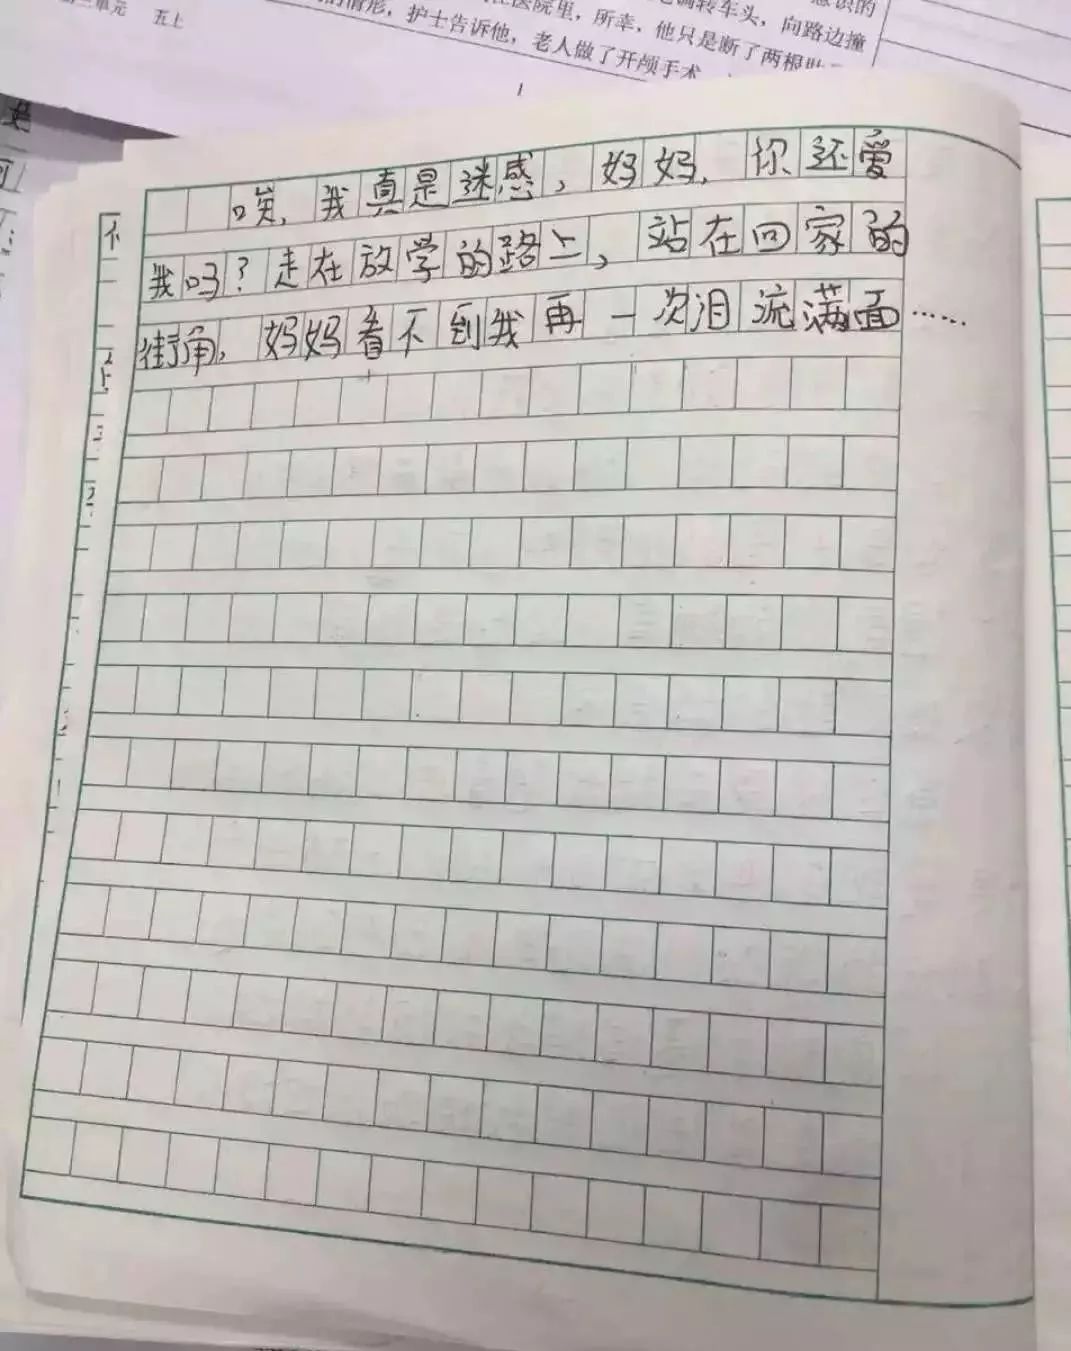 三单元 五上
意识的
医院里，所幸，他只是断了两根
调转车头，向路边撞
的情形，护士告诉他，老人做了开颅手术
1
唉，我真是迷惑，妈妈，你还爱
我吗？走在放学的路上，站在回家的
街角，妈妈看不到我再一次泪流满面……